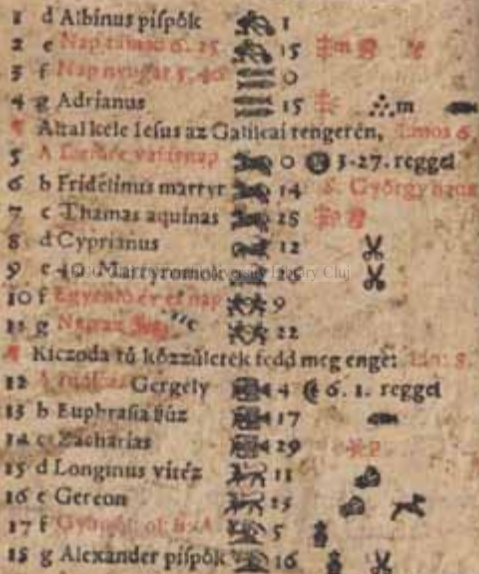 1 d Albinus piſpők 1
2 e Nap támad 6. 25 15 m
3 f Nap nyugat 5. 0
4 g Adrianus 15 m
Által kele Ieſus az Galileai tengerén,
5 A vaſárnap 0 3.27. reggel
6 b Fridelinus martyr 14 S. György
7 c Thamas aquinas 25
8 d Cyprianus 12
9 e 40 Martyromok 26
10 f Egyenlő éy és nap 9
11 g 22
Kiczoda tű közzűletek fedd meg enge: Ian: 8
12 A Gergely 4 6. 1. reggel
13 b Euphraſia ſűz 17
14 c Zacharias 29
15 d Longinus vitéz 11
16 e Gereon 23
17 f 5
18 g Alexander piſpők 16